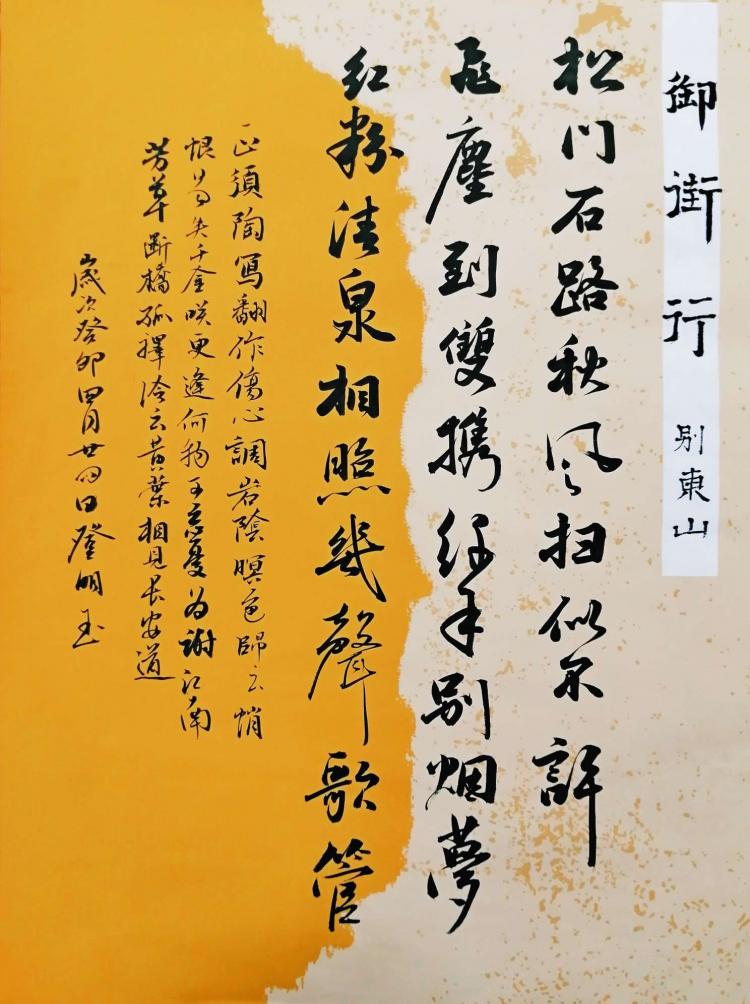 御街行 别東山
松门石路秋风扫似不許
飛塵到雙携纤手别烟夢
红粉清泉相照幾聲歌管
正須陶寫翻作傷心調岩陰暝色歸云悄
恨易失千金咲更逢何物可忘憂为謝江南
芳草断橋孤擇冷云黄葉相見长安道
歲次癸卯四月廿四日登明玉